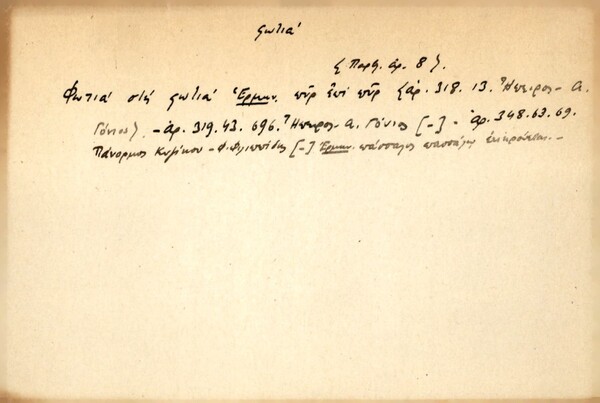 φωτιά
{ Παρῳ. ἀρ. 8 }.
Φωτιά στὴ φωτιά Ἑρμην. πῦρ ἐπὶ πῦρ {ἀρ. 318. 13. Ἤπειρος - Α.
Γόνιος}. - ἀρ. 319. 43. 696. Ἤπειρος - Α. Γόνιος [-] - ἀρ. 348. 63. 69.
Πάνορμος Κυζίκου - Φ. Φιλιππίδης [-] Ἑρμην. πάσσαλος πασσάλῳ ἐκκρούεται. -